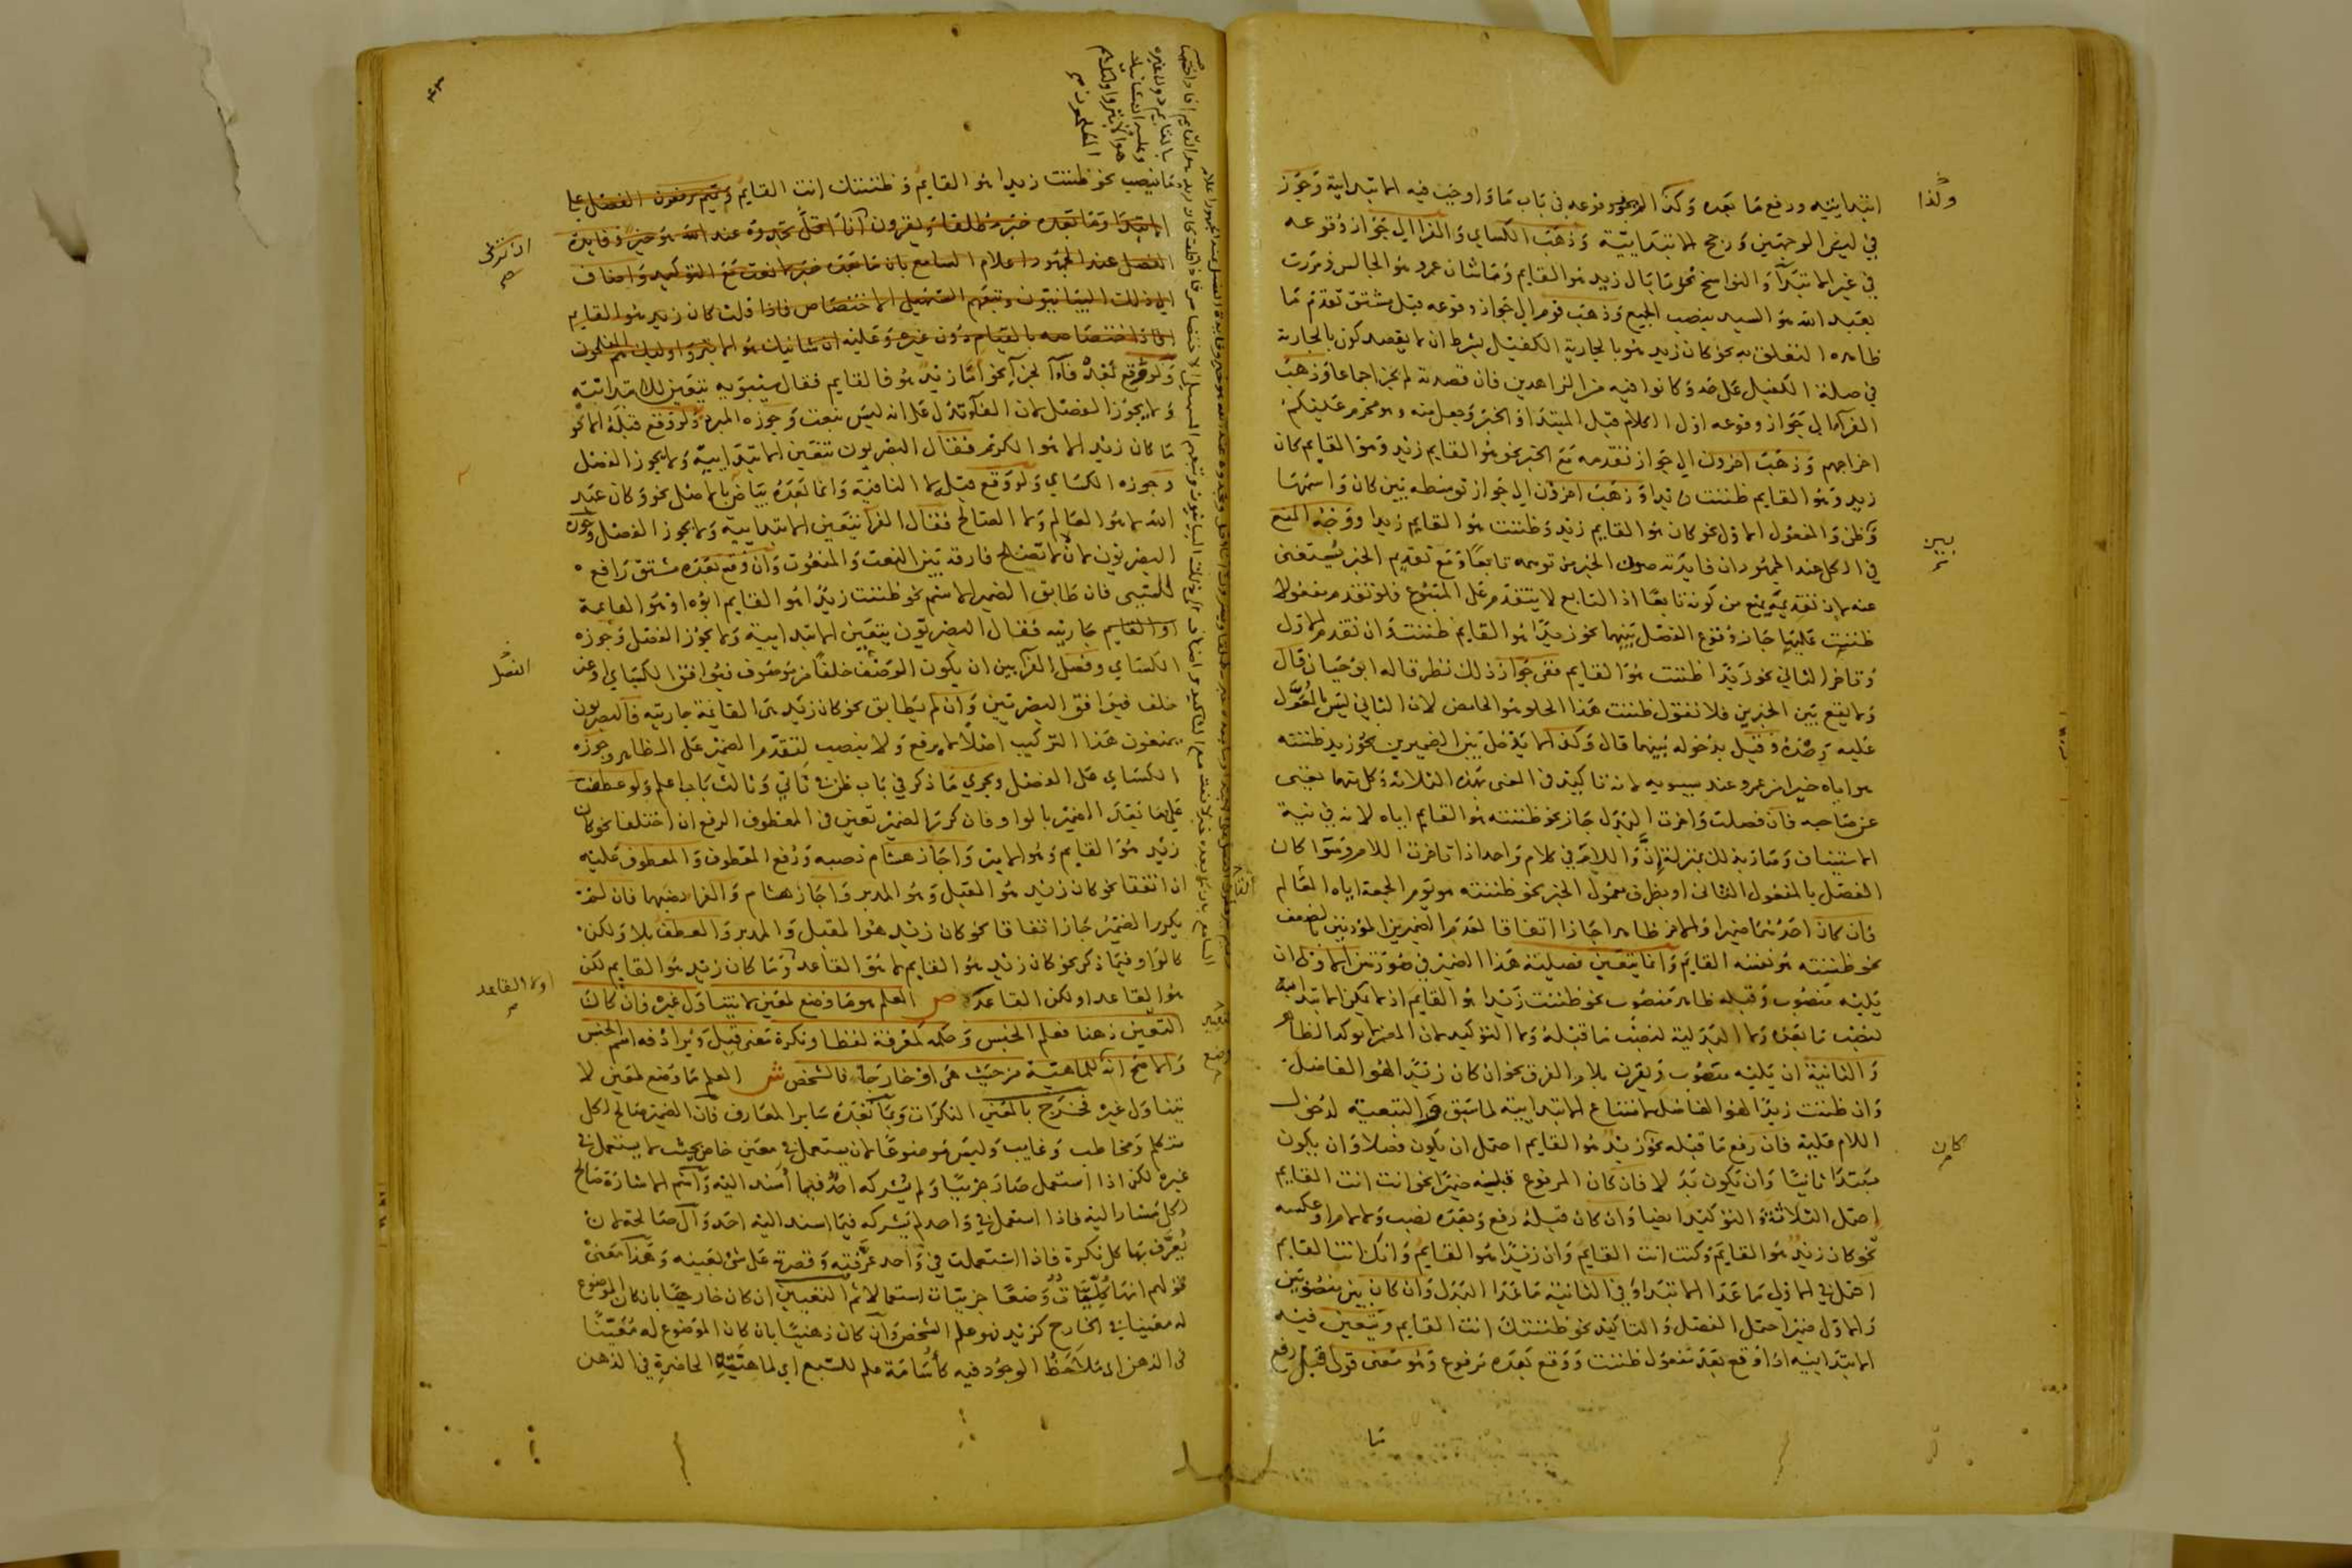 ابتدائيته ورفع ما بعده وكذا وقوعه في باب ما واوجب فيه الابتدائية وجوز
في ليس الوجهين ورجح الابتدائية وذهب الكساي والفرا الي جواز وقوعه
في غير الابتدا والنواسخ نحو ما بال زيد هو القايم وما شان عمرو هو الجالس ومررت
بعبد الله هو السيد بنصب الجميع وذهب قوم الي جواز وقوعه قبل مشتق تقدم ما
ظاهره التعلق به نحو كان زيد هو بالجارية الكفيل بشرط ان لا يقصد كون بالجارية
في صلة الكفيل على حد وكانوا فيه من الزاهدين فان قصدته لم يجز اجماعا وذهب
الفرا الي جواز وقوعه اول الكلام قبل المبتدا والخبر وجعل منه وهو محرم عليكم
اخراجهم وذهب اخرون الي جواز تقدمه مع الخبر نحو هو القايم زيد وهو القايم كان
زيد وهو القايم ظننت زيدا وذهب اخرون الي جواز توسطه بين كان واسمها
وظن والمفعول الاول نحو كان هو القايم زيد وظننت هو القايم زيدا ووجه المنع
في الكل عند الجمهور ان فايدته صون الخبر من توهمه تابعا ومع تقديم الخبر يستغنى
عنه لان تقديمه يمنع من كونه تابعا اذ التابع لا يتقدم على المتبوع فلو تقدم مفعولا
ظننت عليها جاز وقوع الفصل بينهما نحو زيدا هو القايم ظننت وان تقدم الاول
وتاخر الثاني نحو زيدا ظننت هو القايم ففي جواز ذلك نظر قاله ابو حيان قال
ولا يقع بين الخبرين فلا تقول ظننت هذا الحلو هو الحامض لان الثاني ليس بالمعول
عليه وحده وقيل بدخوله بينهما قال وكذا لا يدخل بين الضميرين نحو زيد ظننته
هو اياه خيرا من عمرو عند سيبويه لانه تاكيد في المعنى بهذه الثلاثة وكل منهما يغني
عن صاحبه فان فصلت واخرت البدل جاز نحو ظننته هو القايم اياه لانه في نية
الاستيناف وصار بذلك بمنزلة إنّ واللام في كلام واحد اذا تاخرت اللام وسوا كان
الفصل بالمفعول الثاني او بظرف معمول الخبر نحو ظننته هو يوم الجمعة اياه القايم
فان كان احدهما ضميرا والاخر ظاهرا جازا اتفاقا لعدم الضميرين المؤذنين بالضعف
نحو ظننته هو نفسه القايم وانما يتعين فصلية هذا الضمير في صورتين الاولى ان
يليه منصوب وقبله ظاهر منصوب نحو ظننت زيدا هو القايم اذ لا يمكن الابتدائية
لنصب ما بعده ولا البدلية لنصب ما قبله ولا التوكيد لان المضمر لا يوكد الظاهر
والثانية ان يليه منصوب ويقرن بلام الفرق نحو ان كان زيدا لهو الفاضل
وان ظننت زيدا لهو الفاضل لامتناع الابتدايية لما سبق والتبعية لدخول
اللام عليه فان رفع ما قبله نحو زيد هو القايم احتمل ان يكون فصلا وان يكون
مبتدا ثانيا وان يكون بدلا فان كان المرفوع قبله ضميرا نحو انت انت القايم
احتمل الثلاثة والتوكيد ايضا وان كان قبله رفع وبعده نصب ولا لام او عكسه
نحو كان زيد هو القايم وكنت انت القايم وان زيدا هو القايم وانك انت القايم
احتمل في الاولي ما عدا الابتدا وفي الثانية ما عدا البدل وان كان بين منصوبين
والاول ضمير احتمل الفصل والتاكيد نحو ظننتك انت القايم ويتعين فيه
الابتدايية اذا وقع بعد مفعول ظننت ووقع بعده مرفوع وهو معنى قولي قبل رفع
ما
ولذا
بين
كان
ما ينصب نحو ظننت زيدا هو القايم وظننتك انت القايم وتميم يرفعون الفصل على
الابتدا وما بعده خبره مطلقا ويقرون انا اقل تجدوه عند الله هو خير وفايدة
الفصل عند الجمهور اعلام السامع بان ما بعده خبر لا نعت مع التوكيد واضاف
الي ذلك البيانيون وتبعهم السهيلي الاختصاص فاذا قلت كان زيد هو القايم
افاد اختصاصه بالقيام دون غيره وعليه ان شانيك هو الابتر واوليك هم المفلحون
ولو وقع بعد فاء الجزا نحو اما زيد هو فالقايم فقال سيبويه يتعين للابتدائية
ولا يجوز الفصل لان الفاء تدل على انه ليس بنعت وجوزه المبرد ولو وقع قبله الا نحو
ما كان زيد الا هو الكريم فقال البصريون تتعين الابتدايية ولا يجوز الفصل
وجوزه الكساي ولو وقع قبله لا النافية وانما بعده بياض بالاصل نحو وكان عبد
الله لا هو العالم ولا الصالح فقال الفرا تتعين الابتدايية ولا يجوز الفصل وجوزه
البصريون لان لا تصلح فارقة بين النعت والمنعوت وان وقع بعده مشتق رافع
للسببي فان طابق الضمير الاسم نحو ظننت زيدا هو القايم ابوه او هو القايمة
او القايم جاريته فقال البصريون يتعين الابتدايية ولا يجوز الفصل وجوزه
الكساي وفصل الفرا بين ان يكون الوصف خلفا من موصوف فيوافق الكساي او غير
خلف فيوافق البصريين وان لم يطابق نحو كان زيد هي القايمة جاريته فالبصريون
يمنعون هذا التركيب اصلا لا يرفع ولا ينصب لتقدم الضمير على الظاهر وجوزه
الكساي على الفصل ويجري ما ذكر في باب ظن في ثاني وثالث باب اعلم ولو عطفت
على ما بعد الضمير بالواو فان كرر الضمير تعين في المعطوف الرفع ان اختلفا نحو كان
زيد هو القايم وهو الامير واجاز هشام نصبه ورفع المعطوف والمعطوف عليه
ان اتفقا نحو كان زيد هو المقبل وهو المدبر واجاز هشام والفرا نصبهما فان لم
يكرر الضمير جازا اتفاقا نحو كان زيد هو المقبل والمدبر والعطف بلا ولكن
كالواو فيما ذكر نحو كان زيد هو القايم لا هو القاعد وما كان زيد هو القايم لكن
هو القاعد او لكن القاعد ص العلم هو ما وضع لمعين لا يتناول غيره فان كان
التعين ذهنا فعلم الجنس وحكمه كمعرفة لفظا ونكرة معنى قيل ويرادفه اسم الجنس
والاصح انه للماهية من حيث هي او خارجا فالشخص ش العلم ما وضع لمعين لا
يتناول غيره فخرج بالمعين النكرات وبما بعده ساير المعارف فان الضمير صالح لكل
متكلم ومخاطب وغايب وليس موضوعا لان يستعمل في معين خاص بحيث لا يستعمل في
غيره لكن اذا استعمل صار جزئيا ولم يشركه احد فيما أسند اليه واسم الاشارة صالح
لكل مشار اليه فاذا استعمل في واحد لم يشركه فيما اسند اليه احد وال صالحة لان
يُعرّف بها كل نكرة فاذا استعملت في واحد عرفته وقصرته على شي بعينه وهذا معنى
قولهم انها كليات وضعا جزييات استعمالا ثم التعيين ان كان خارجيا بان كان الموضوع
له معينا في الخارج كزيد فهو علم الشخص وان كان ذهنيا بان كان الموضوع له معينا
في الذهن اي ملاحظ الوجود فيه كأسامة علم للسبع اي لماهيته الحاضرة في الذهن
الفصل
او لا القاعد
بالقيام دون غيره
وعليه ان شانيك
هو الابتر واوليك هم
المفلحون